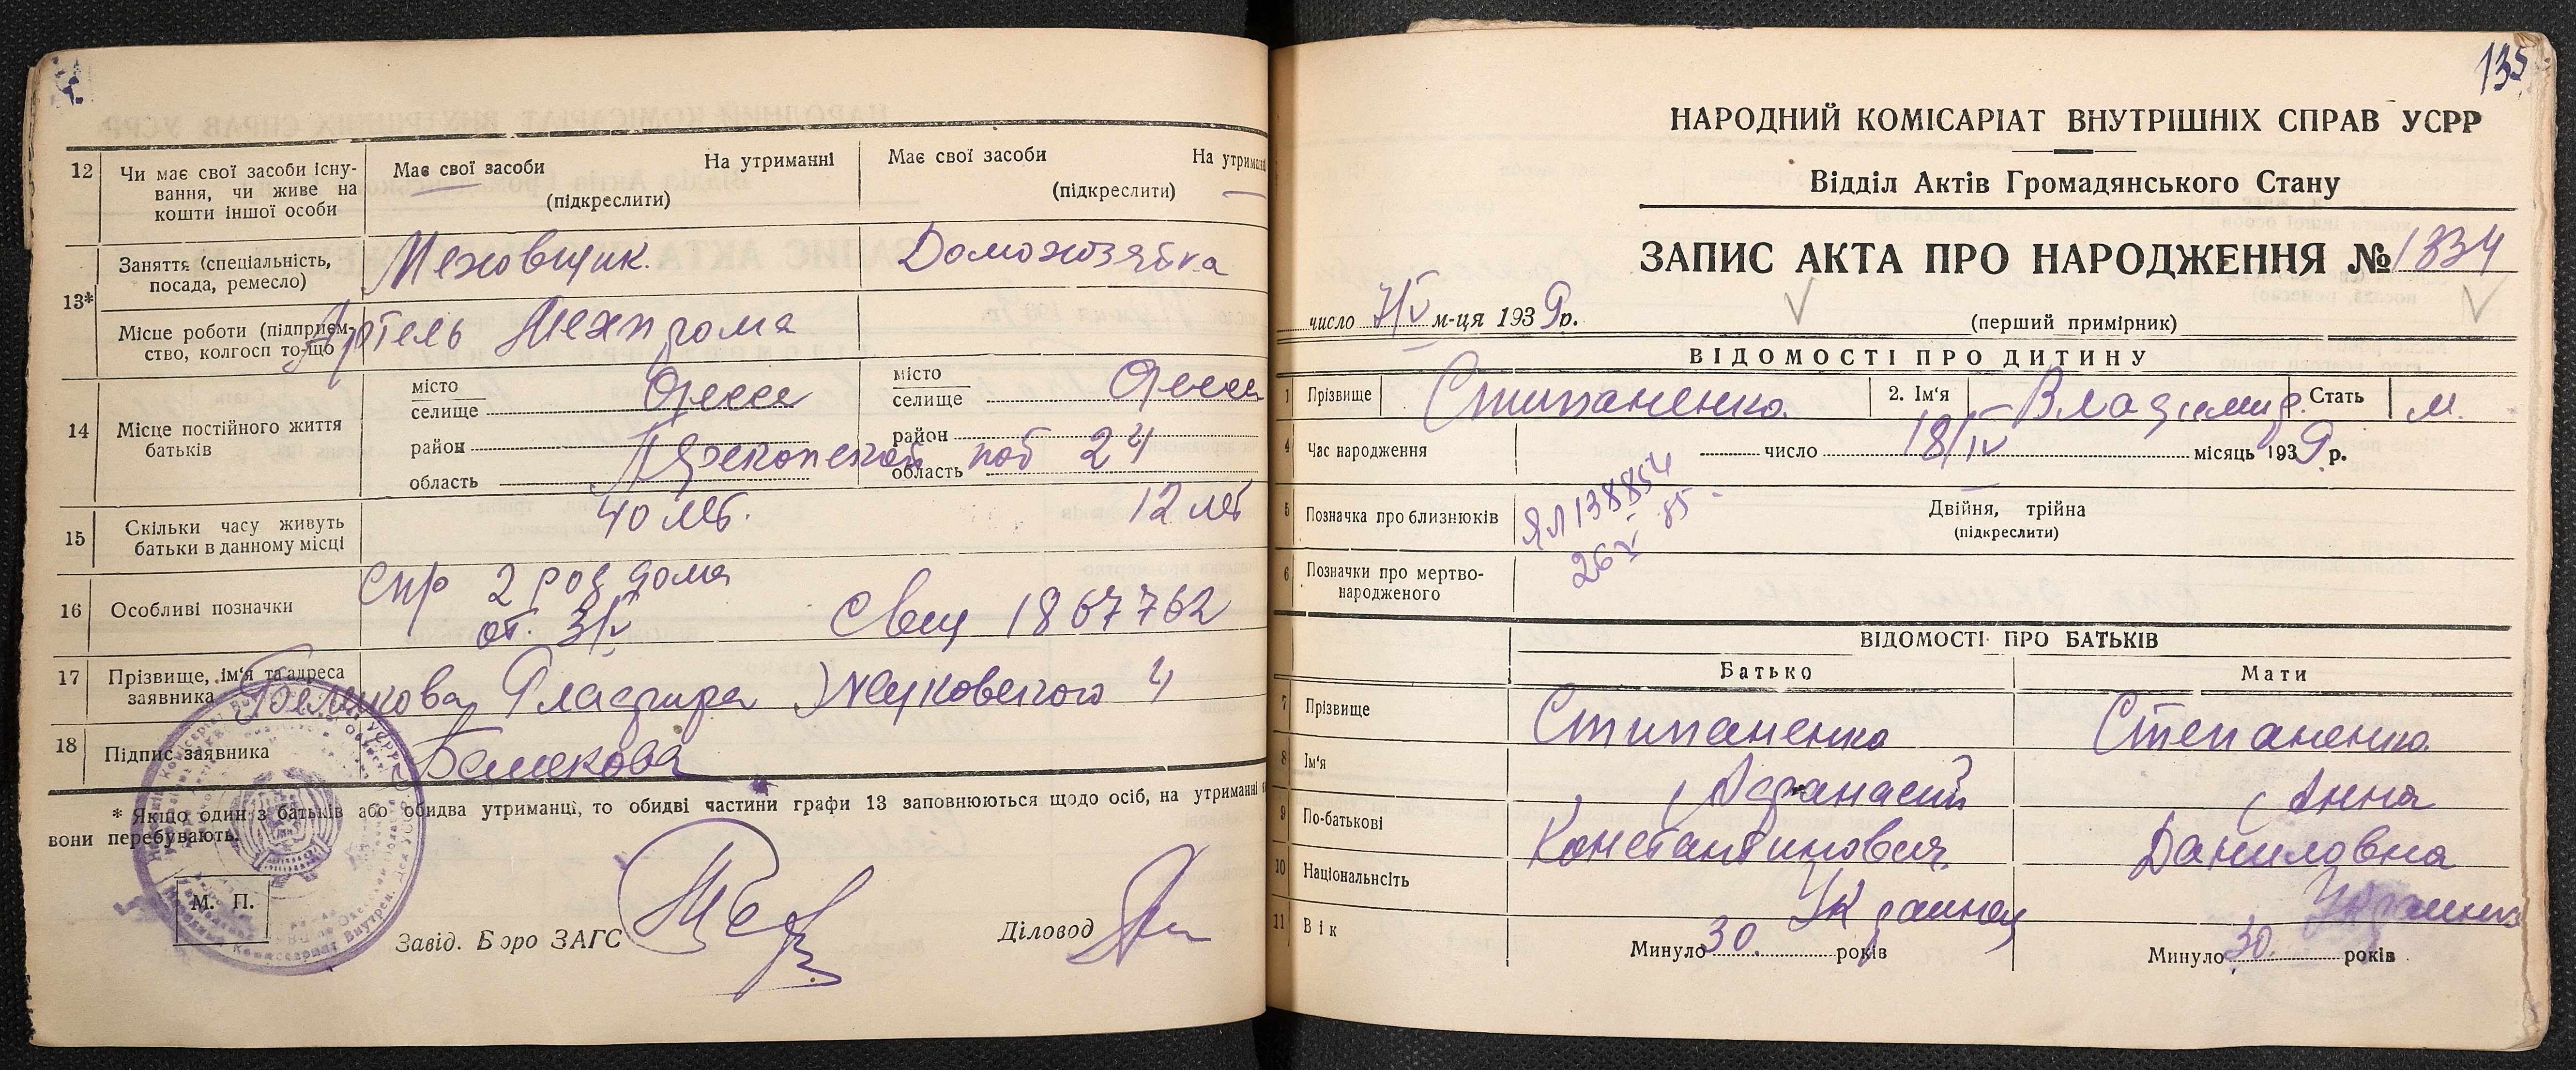 12 Чи має свої засоби існу-
вання, чи живе на
кошти іншої особи
Має свої засоби На утриманні
(підкреслити)
Має свої засоби На утриманні
(підкреслити)
13* Заняття (спеціальність,
посада, ремесло)
Меховщик. Домохозяйка
Місце роботи (підприєм-
ство, колгосп то-що
Артель Мехпрома
14 Місце постійного життя
батьків
місто Одесса
селище
район
область
місто Одесса
селище
район
область
Перекопской поб 24
15 Скільки часу живуть
батьки в данному місці
40 лет. 12 лет
16 Особливі позначки
Спр 2 род дома
от. 3/V Свид 1867762
17 Прізвище, ім'я та адреса
заявника
Гласфира Жуковского 4
18 Підпис заявника
* Якщо один з батьків або обидва утриманці, то обидві частини графи 13 заповнюються щодо осіб, на утриманні
вони перебувають.
М. П.
Завід. Бюро ЗАГС
Діловод
135
НАРОДНИЙ КОМІСАРІАТ ВНУТРІШНІХ СПРАВ УСРР
Відділ Актів Громадянського Стану
ЗАПИС АКТА ПРО НАРОДЖЕННЯ № 1334
число 7/V м-ця 1939 р.
(перший примірник)
ВІДОМОСТІ ПРО ДИТИНУ
1 Прізвище Стипаненко 2. Ім'я Владимир. Стать м.
4 Час народження число 18/IV місяць 1939 р.
5 Позначка про близнюків
Двійня, трійна
(підкреслити)
ЯЛ 138854
26 V 85
6 Позначки про мертво-
народженого
ВІДОМОСТІ ПРО БАТЬКІВ
Батько Мати
7 Прізвище Стипаненко Степаненко
8 Ім'я Афанасий Анна
9 По-батькові Константинович Даниловна
10 Національнсіть Украинец Украинка
11 Вік Минуло 30. років Минуло 30. років